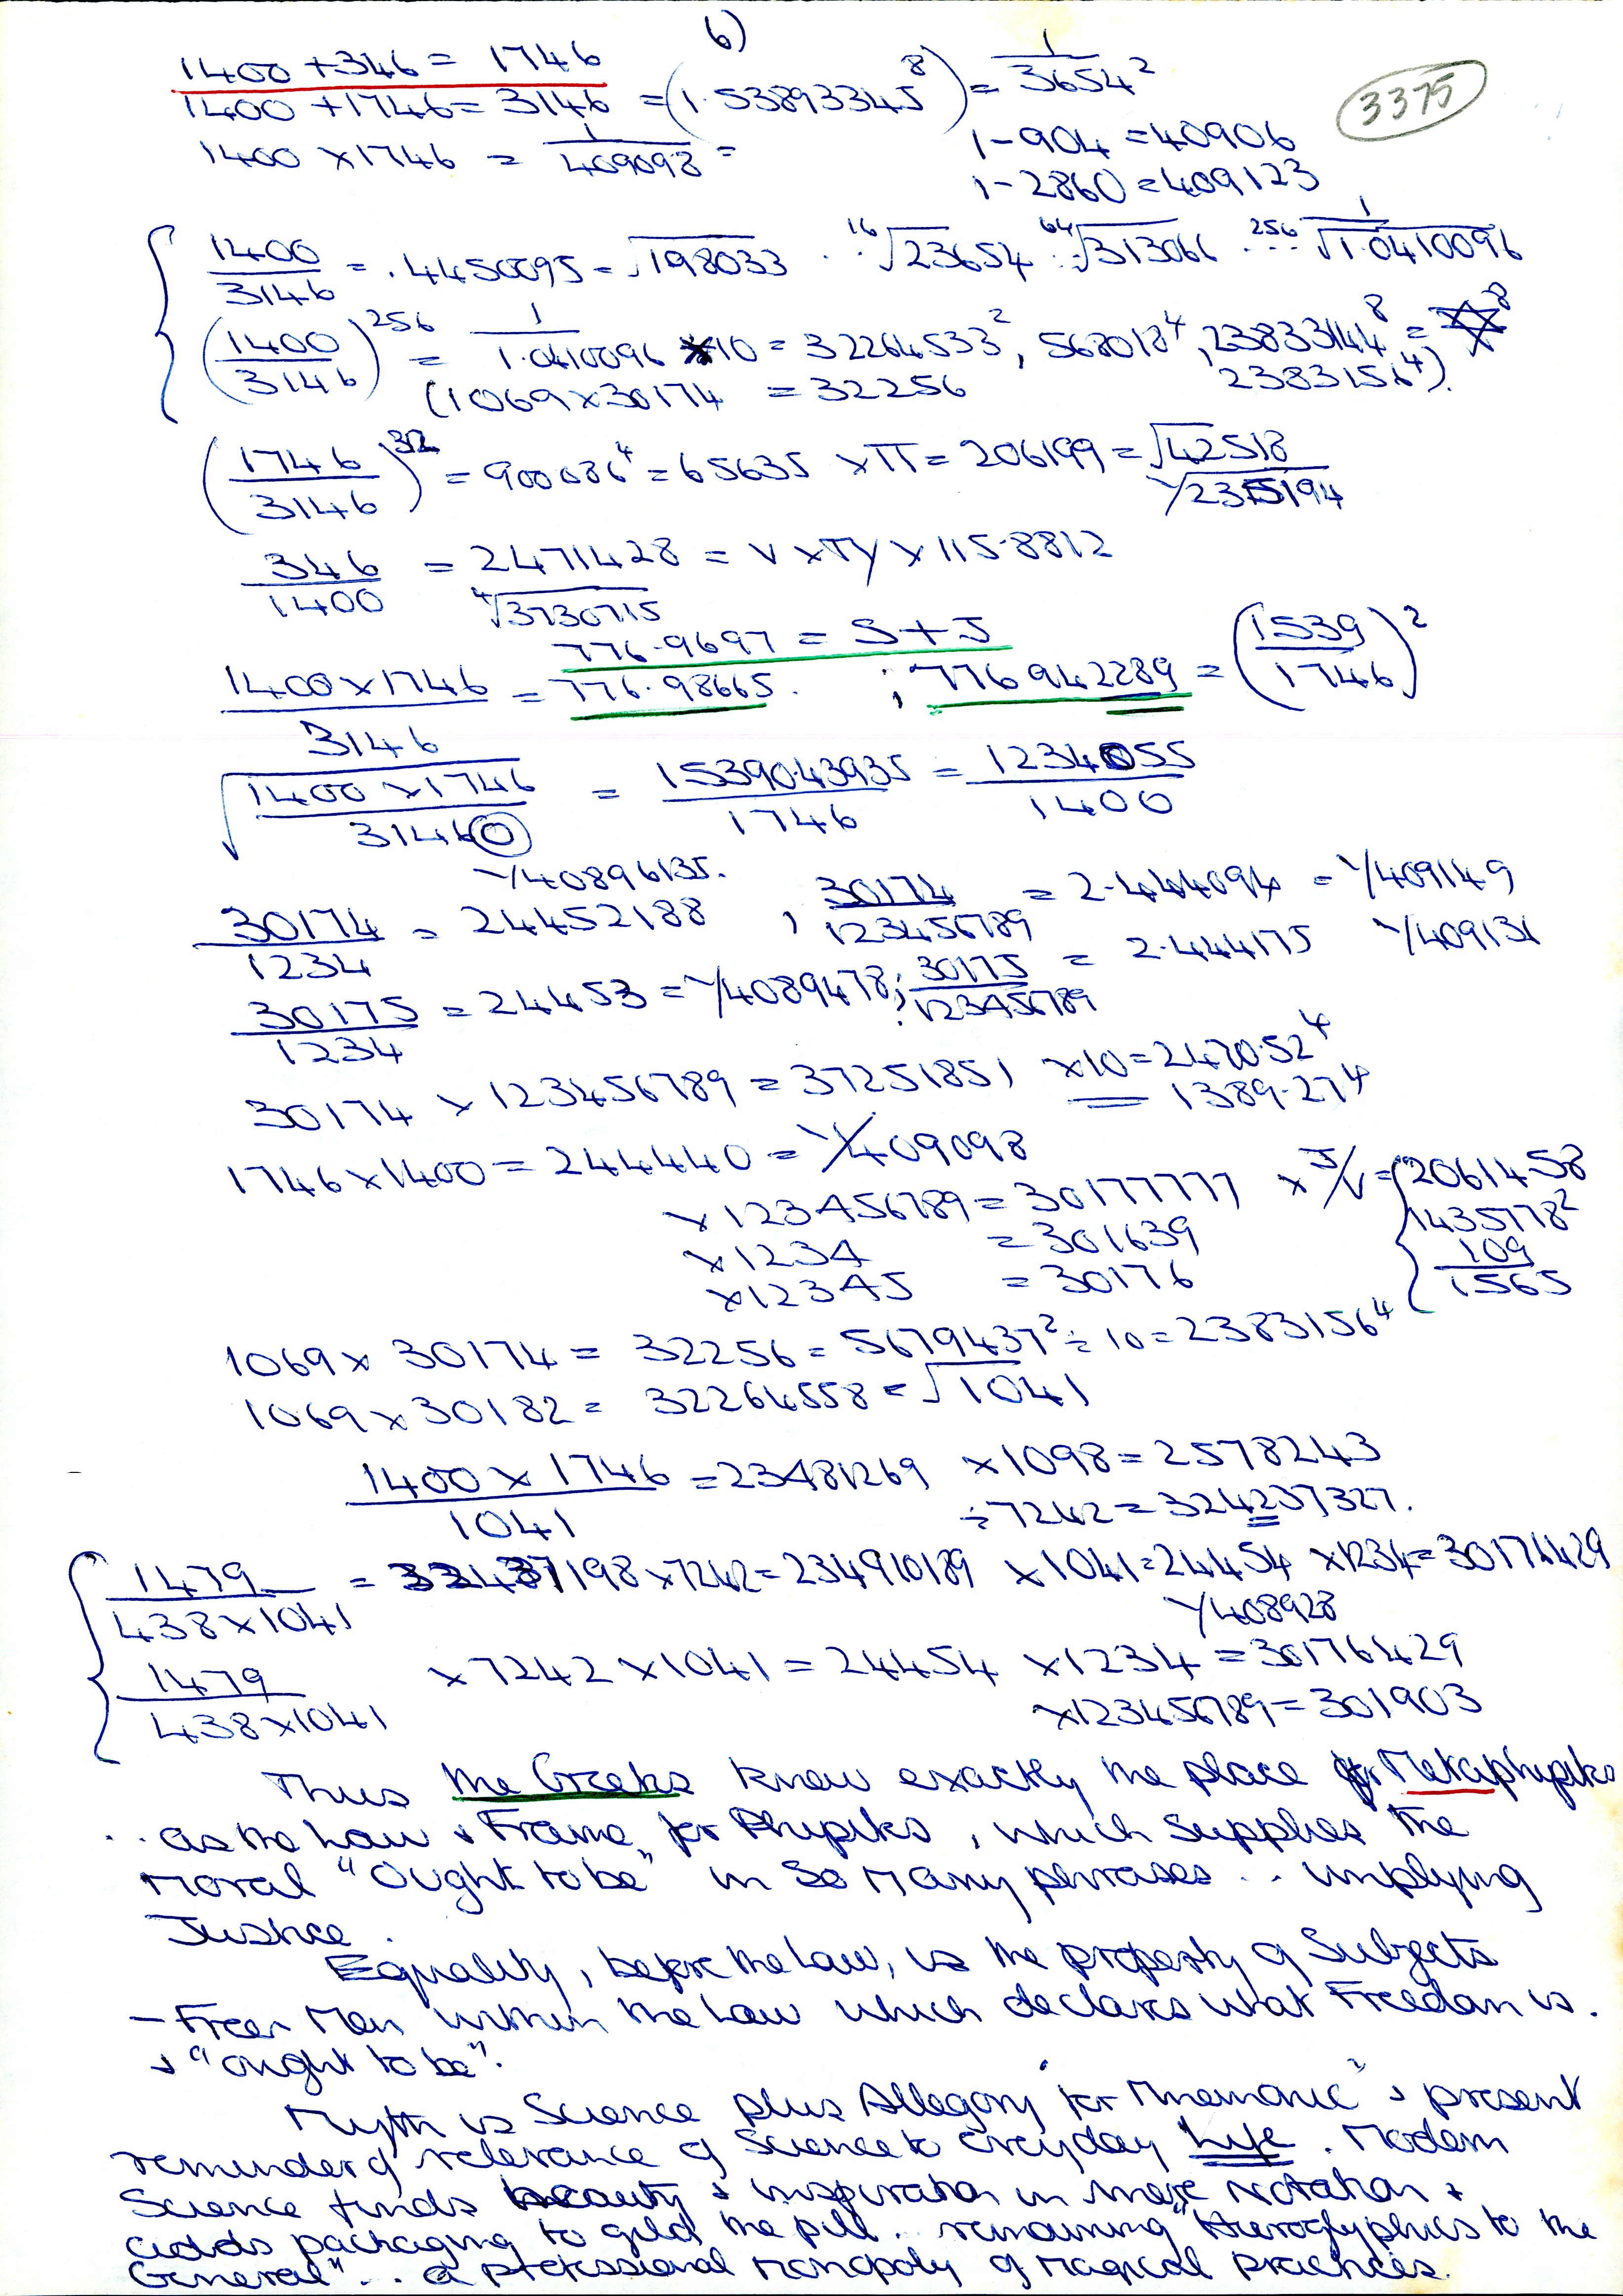 6)
3375
1400 + 346 = 1746
1400 + 1746 = 3146 = (1.53893345⁸) = 1/3654²
1400 × 1746 = 1/409098 =
1-904 = 40906
1-2860 = 409123
1400/3146 = .4450095 = √198033 ... ¹⁶√23654 .. ⁶⁴√313066 ... ²⁵⁶√1/1.0410096
(1400/3146)²⁵⁶ = 1/1.0410096 × 10 = 32264533², 568018⁴, 23833144⁸ = ✡⁸
(1069 × 30174 = 32256 2383156⁴).
(1746/3146)³² = 900636⁴ = 65635 × π = 206199 = √42518
1/√235194
346/1400 = 2471428 = V × Ty × 115.8812
⁴√3730715
776.9697 = S + J
1400 × 1746/3146 = 776.98665. ; 776942289 = (1539/1746)²
√1400 × 1746/31460 = 1539043935/1746 = 1234055/1400
1/40896135.
30174/1234 = 24452188 , 30174/123456789 = 2.444094 = 1/409149
30175/1234 = 24453 = 1/4089478 ; 30175/123456789 = 2.444175 1/409131
30174 × 123456789 = 37251851 × 10 = 2470.52⁴
1389.27⁴
1746 × 1400 = 244440 = 1/409098
× 123456789 = 30177777 × J/V = 2061458
× 1234 = 301639 1435778²
× 12345 = 30176 109/1565
1069 × 30174 = 32256 = 5679437² ÷ 10 = 2383156⁴
1069 × 30182 = 32264558 = √1041
1400 × 1746/1041 = 23481269 × 1098 = 2578243
÷ 7242 = 324237327.
1479/438 × 1041 = 32437198 × 7242 = 234910189 × 1041 = 24454 × 1234 = 30176429
1/408928
1479/438 × 1041 × 7242 × 1041 = 24454 × 1234 = 30176429
× 123456789 = 301903
Thus the Greeks knew exactly the place for Metaphysiks
.. as the Law & Frame for Physiks, which supplies the
Moral "Ought to be" in so many phrases .. implying
Justice.
Equality, before the Law, is the property of Subjects
– Free Men within the Law which declares what Freedom is.
& "ought to be".
Myth is Science plus Allegory 'for Mnemonic' & present
reminder of relevance of Science to everyday Life. Modern
Science finds beauty & inspiration in mere Notation &
adds packaging to gild the pill .. remaining "Hieroglyphics to the
General" .. a professional Monopoly of Magical practices.